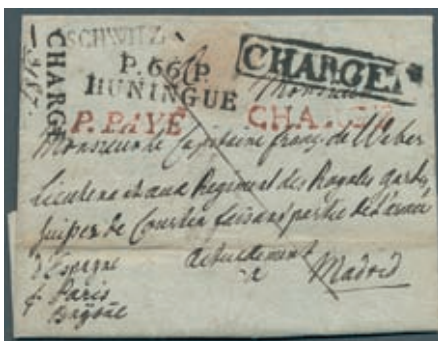 SCHWITZ
CHARGÉ
P.66.P.
HUNINGUE
CHARGÉ
P. PAYÉ
CHARGÉ
Monsieur
Monsieur le Capitaine franç. de Weber
Lieutenant aux Regiment des Royales gardes
Suisses de faisant partie de l'armée
d'Espagne actuellement
à Madrid
p Paris